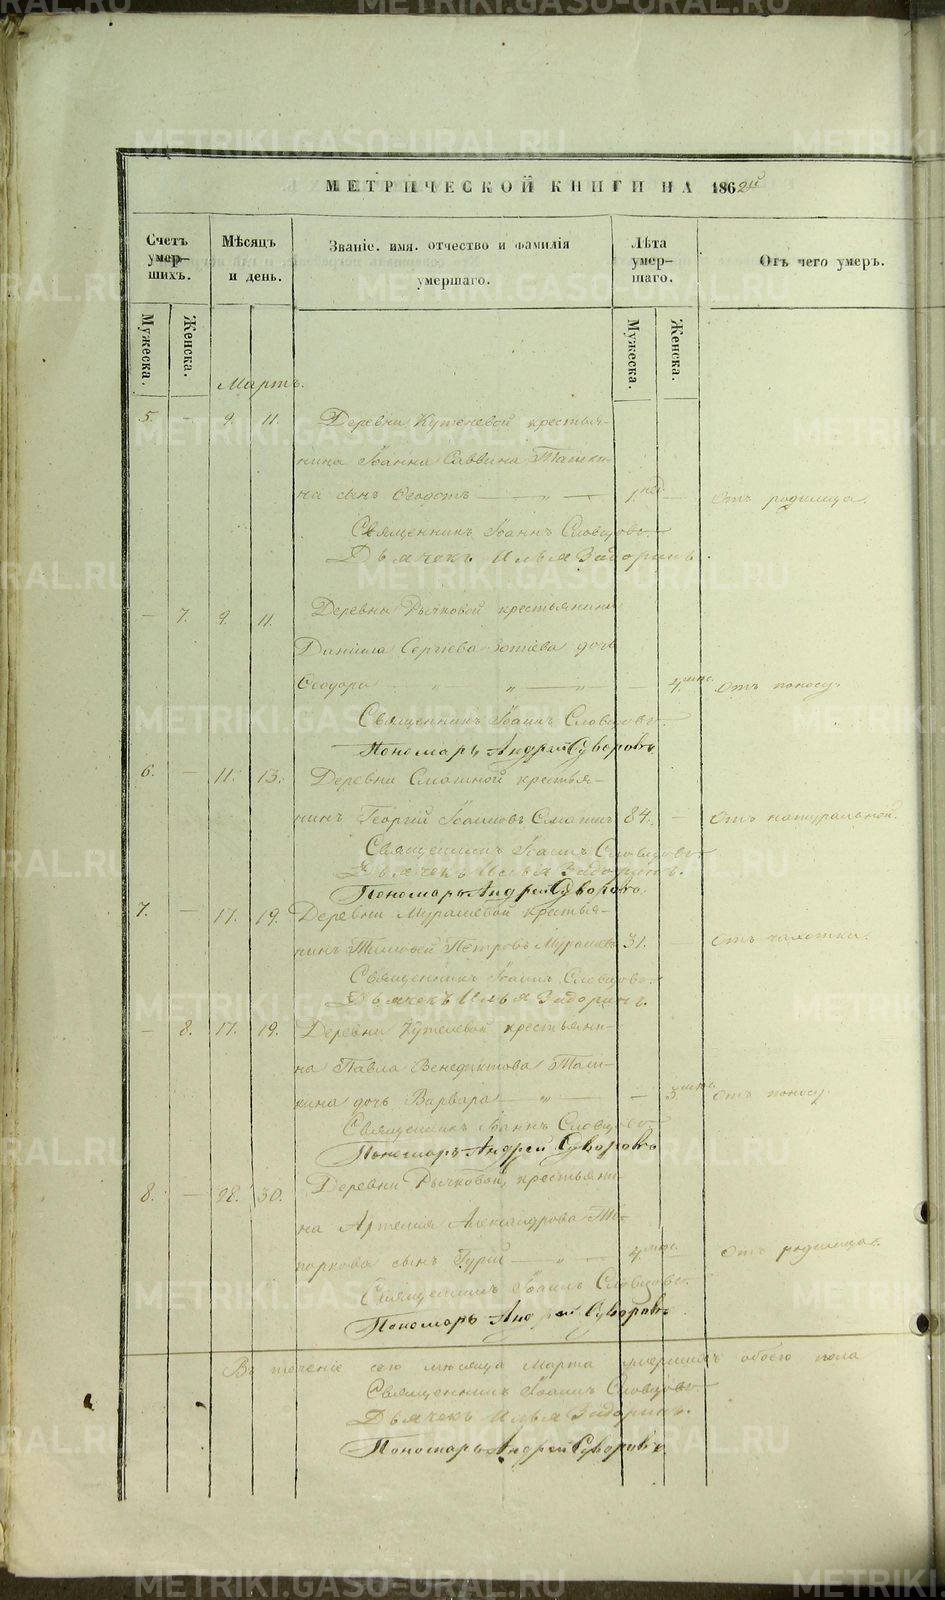 МЕТРИЧЕСКОЙ КНИГИ НА 1862й
Счетъ умер-шихъ.
Мѣсяцъ и день.
Званіе, имя, отчество и фамилія умершаго.
Лѣта умер-шаго.
Отъ чего умеръ.
Мужеска.
Женска.
Мужеска.
Женска.
Мартъ.
5. — 9. 11. Деревни Кутеневой крестья-
нина Іоанна Саввина
на сынъ Ѳеодотъ — „ — 1 нед — Отъ родимца.
Священникъ Іоаннъ Словцовъ
Дьячекъ Илья Задоринъ.
— 7. 9. 11. Деревни Рычковой крестьянина
Даніила Сергіева Зотіева дочь
Ѳеодора — „ — „ — „ — 4. мѣс. Отъ поносу.
Священникъ Іоаннъ Словцовъ
Пономарь Андрей Суворовъ
6. — 11. 13. Деревни Смагиной крестья-
нинъ Георгій Іоанновъ Смагинъ 84. — Отъ натуральной.
Священникъ Іоаннъ Словцовъ
Дьячекъ Илья Задоринъ.
Пономарь Андрей Суворовъ.
7. — 17. 19. Деревни Мурашевой крестья-
нинъ Тимофей Петровъ Мурашевъ 31. — Отъ чахотки.
Священникъ Іоаннъ Словцовъ
Дьячекъ Илья Задоринъ.
— 8. 17. 19. Деревни Кутеневой крестьяни-
на Павла Венедиктова
кина дочь Варвара — „ — — 3 мѣс. Отъ поносу.
Священникъ Іоаннъ Словцовъ
Пономарь Андрей Суворовъ
8. — 28. 30. Деревни Рычковой, крестьяни-
на Артемія Александрова То-
поркова сынъ Гурій — „ — 4. мѣс. Отъ родимца.
Священникъ Іоаннъ Словцовъ.
Пономарь Андрей Суворовъ
Въ теченіе сего мѣсяца Марта умершихъ обоего пола
Священникъ Іоаннъ Словцовъ
Дьячекъ Илья Задоринъ.
Пономарь Андрей Суворовъ.
METRIKI.GASO-URAL.RU